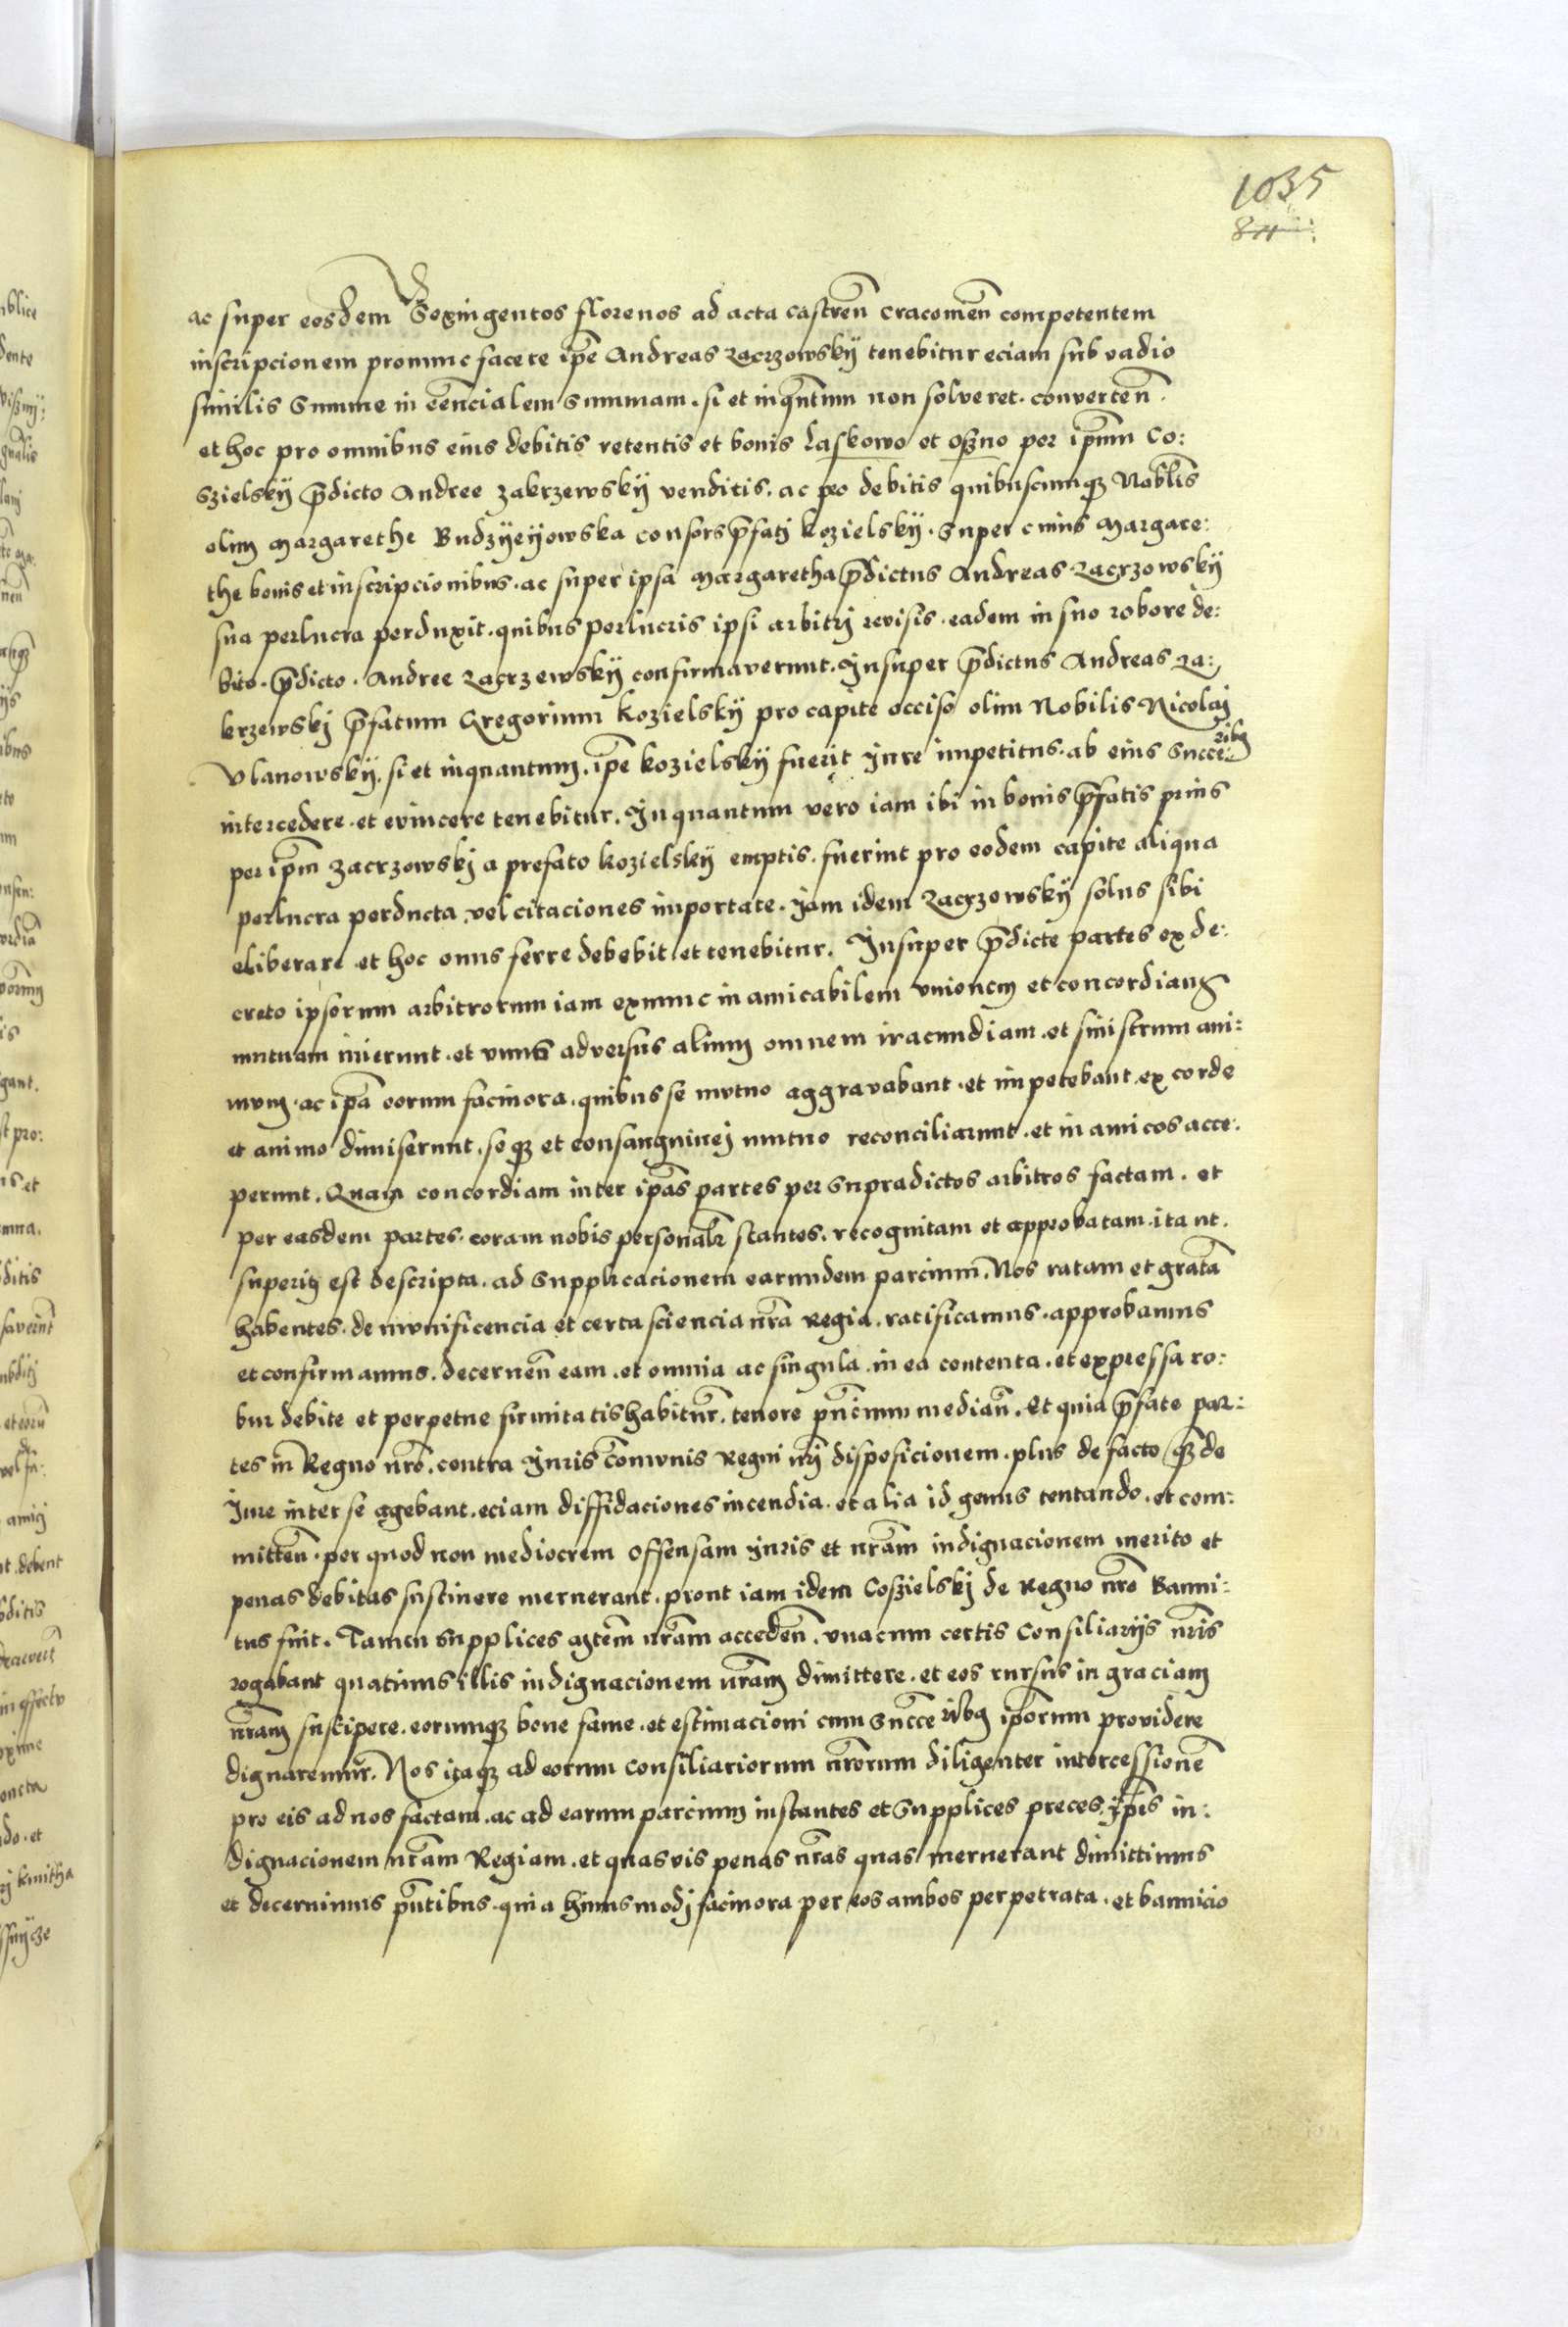 1035
ac super eosdem Sexingentos florenos ad acta castren̄ cracouien̄ competentem
inscripcionem pronunc facere ip̄e Andreas Zacrzowskÿ tenebitur eciam sub vadio
similis Summe in eēncialem Summam. si et inqn̄tum non solveret. converten̄.
et hoc pro omnibus eius debitis retentis et bonis Laskowo et per ip̄um Co:
szielskÿ p̄dicto Andree Zakrzewskÿ venditis. ac pro debitis quibuscumqꝫ Nobl̄is
olim Margarethe Budzÿeÿowska consors p̄fatj kozielskÿ. Super cuius Margare:
the bonis et inscripcionibus. ac super ipsa Margaretha p̄dictus Andreas Zacrzowskÿ
sua perlucra perduxit. quibus perlucris ipsi arbitrj revisis. eadem in suo robore de:
bito. p̄dicto. Andree Zacrzewskÿ confirmaverunt. Insuper p̄dictus Andreas Za:
krzewskj p̄fatum Gregorium kozielskÿ pro capite occiso olim Nobilis Nicolaj
Vlanowskÿ. si et inquantum. ip̄e kozielskÿ fuerit Jure impetitus. ab eius succe:ribꝫ
intercedere. et evincere tenebitur. Inquantum vero iam ibi in bonis p̄fatis prius
per ip̄m Zacrzowskj a prefato kozielskÿ emptis. fuerint pro eodem capite aliqua
perlucra perducta vel citaciones importate. Jam idem Zacrzowskÿ solus sibi
eliberare et hoc onus ferre debebit et tenebitur. Insuper p̄dicte partes ex de:
creto ipsorum arbitrorum iam exnunc in amicabilem vnionem et concordiam
mutuam inierunt. et vnus adversus alium omnem iracundiam. et sinistrum ani:
mum. ac ip̄a eorum facinora. quibus se mutuo aggravabant. et impetebant ex corde
et animo dimiserunt. seqꝫ et consanguinej mutuo reconciliarunt. et in amicos acce:
perunt. Quam concordiam inter ip̄as partes per supradictos arbitros factam. et
per easdem partes. coram nobis personalr̄ stantes. recognitam et approbatam. ita ut.
superiꝫ est descripta. ad Supplicacionem earundem parcium. Nos ratam et gratā
habentes. de munificencia et certa sciencia nr̄a Regia. ratificamus. approbamus
et confirmamus. decernen̄ eam. et omnia ac singula in ea contenta. et expressa ro:
bur debite et perpetue firmitatis habitur̄. tenore pn̄cium median̄. Et quia p̄fate par:
tes in Regno nr̄o. contra Juris cōmunis Regni nr̄j disposicionem. plus de facto qꝫ de
Jure inter se agebant. eciam diffidaciones incendia. et alia id genus tentando. et com:
mitten̄. per quod non mediocrem offensam Juris et nr̄am indignacionem merito et
penas debitas sustinere meruerant. prout iam idem Coszielskj de Regno nr̄o Banni:
tus fuit. Tamen supplices mtēm nr̄am acceden̄. vnacum certis Consiliarÿs nr̄is
rogabant quatinus illis indignacionem nr̄am dimittere. et eos rursus in graciam
nr̄am suscipere. eorumqꝫ bone fame. et estimacioni cum Succēribꝫ ip̄orum providere
dignaremur̄. Nos itaqꝫ ad eorum Consiliariorum nr̄orum diligenter intercessionē
pro eis ad nos factam. ac ad earum parcium instantes et Supplices preces. ip̄is in:
dignacionem nr̄am Regiam. et quasvis penas nr̄as quas meruerant dimittimus
et decernimus pn̄tibus. quia huiusmodj facinora per eos ambos perpetrata. et bannicio